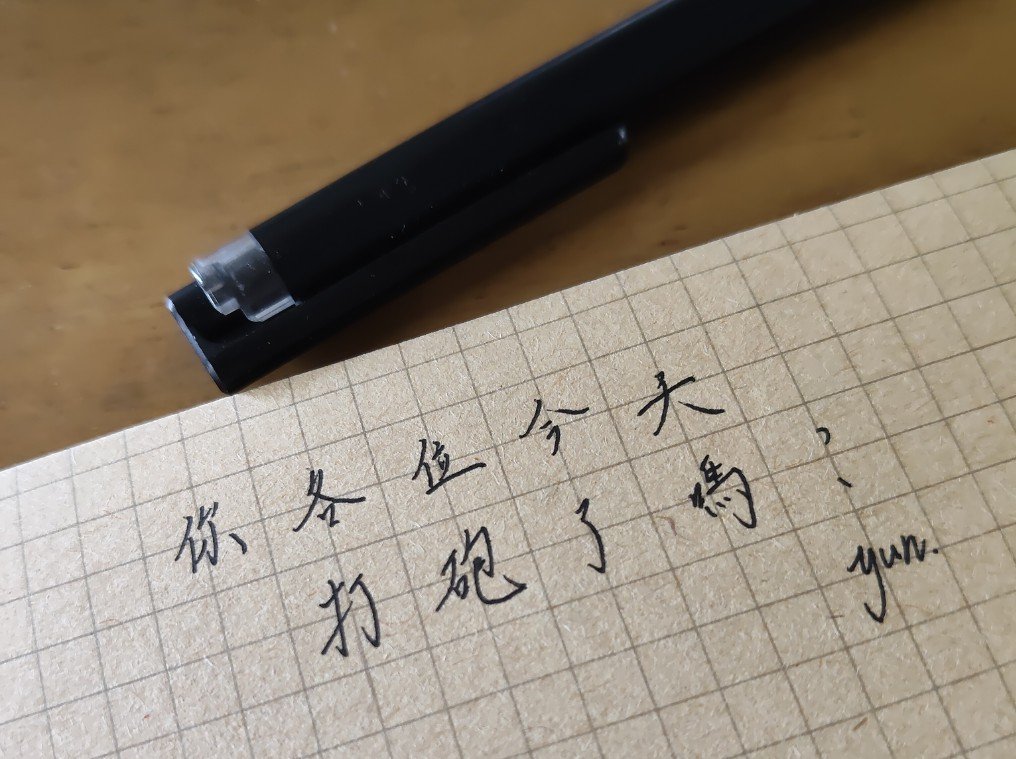 你各位今天
打砲了嗎?
yun.